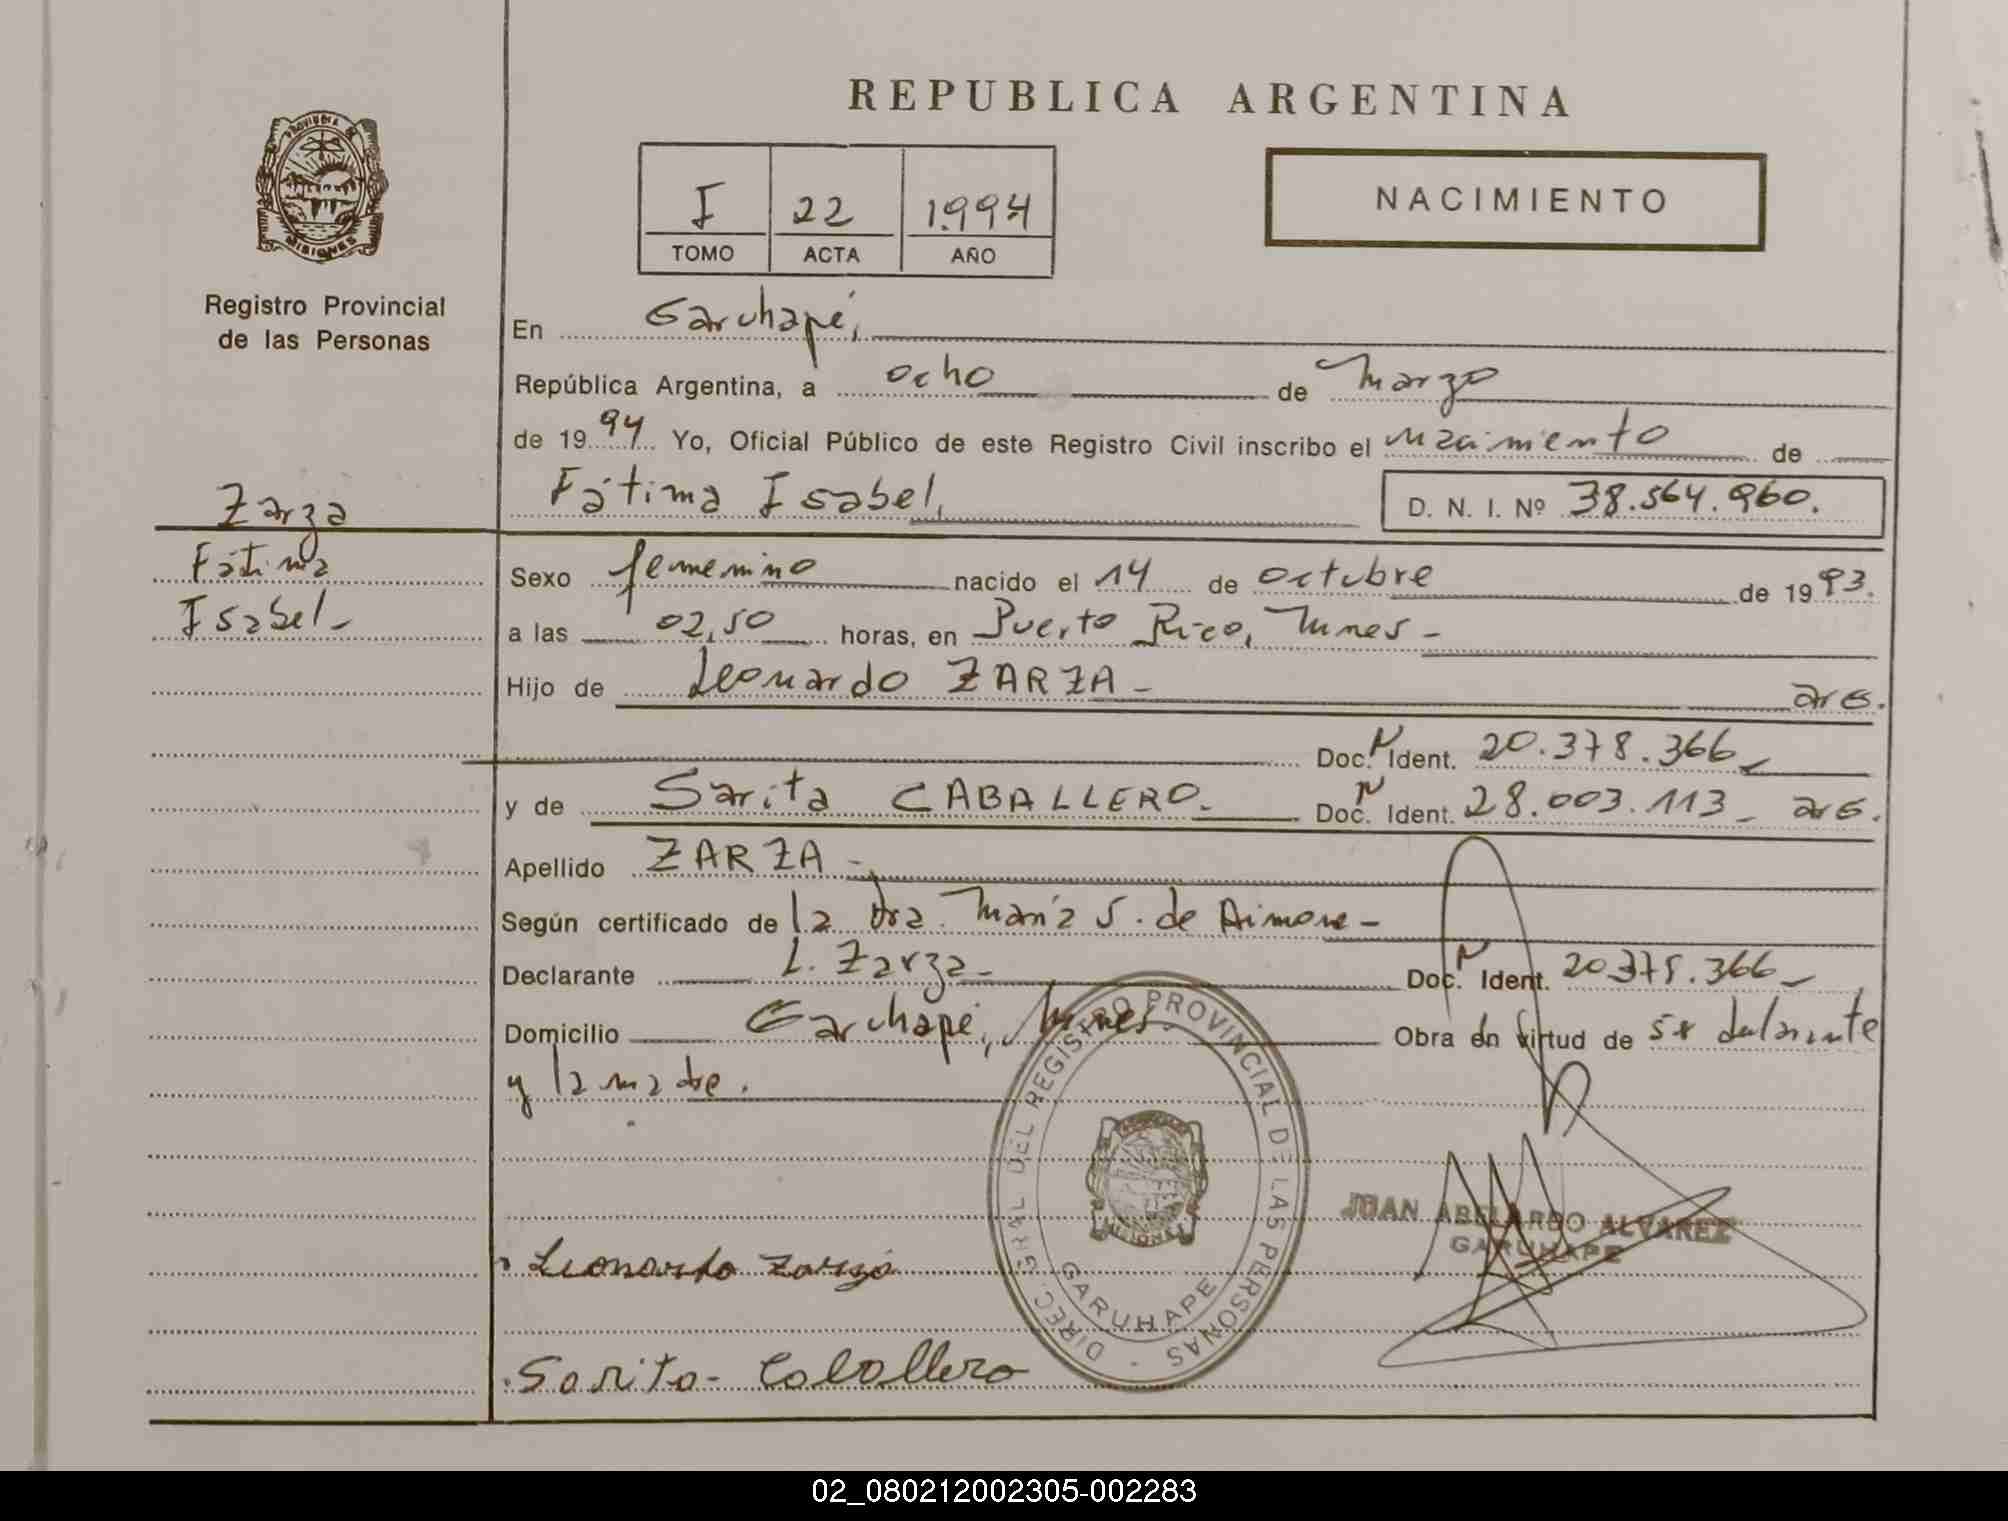 REPUBLICA ARGENTINA
PROVINCIA DE
MISIONES
Registro Provincial
de las Personas
I 22 1994
TOMO ACTA AÑO
NACIMIENTO
En Garuhapé,
República Argentina, a ocho de Marzo
de 19 94 Yo, Oficial Público de este Registro Civil inscribo el nacimiento de
Fátima Isabel, D. N. I. Nº 38.564.960.
Zarza
Fátima
Isabel-
Sexo femenino nacido el 14 de octubre de 19 93.
a las 02,50 horas, en Puerto Rico, Mnes-
Hijo de Leonardo ZARZA- arg.
Doc. N Ident. 20.378.366-
y de Sarita CABALLERO- Doc. N Ident. 28.003.113- arg.
Apellido ZARZA-
Según certificado de la dra. María S. de
Declarante L. Zarza- Doc. N Ident. 20.378.366-
Domicilio Garuhapé, Mnes. Obra en virtud de ser declarante
y la madre.
DIREC. GRAL. DEL REGISTRO PROVINCIAL DE LAS PERSONAS -
GARUHAPE
JUAN ABELARDO ALVAREZ
GARUHAPE
Leonardo Zarza
Sarita- Caballero
02_080212002305-002283